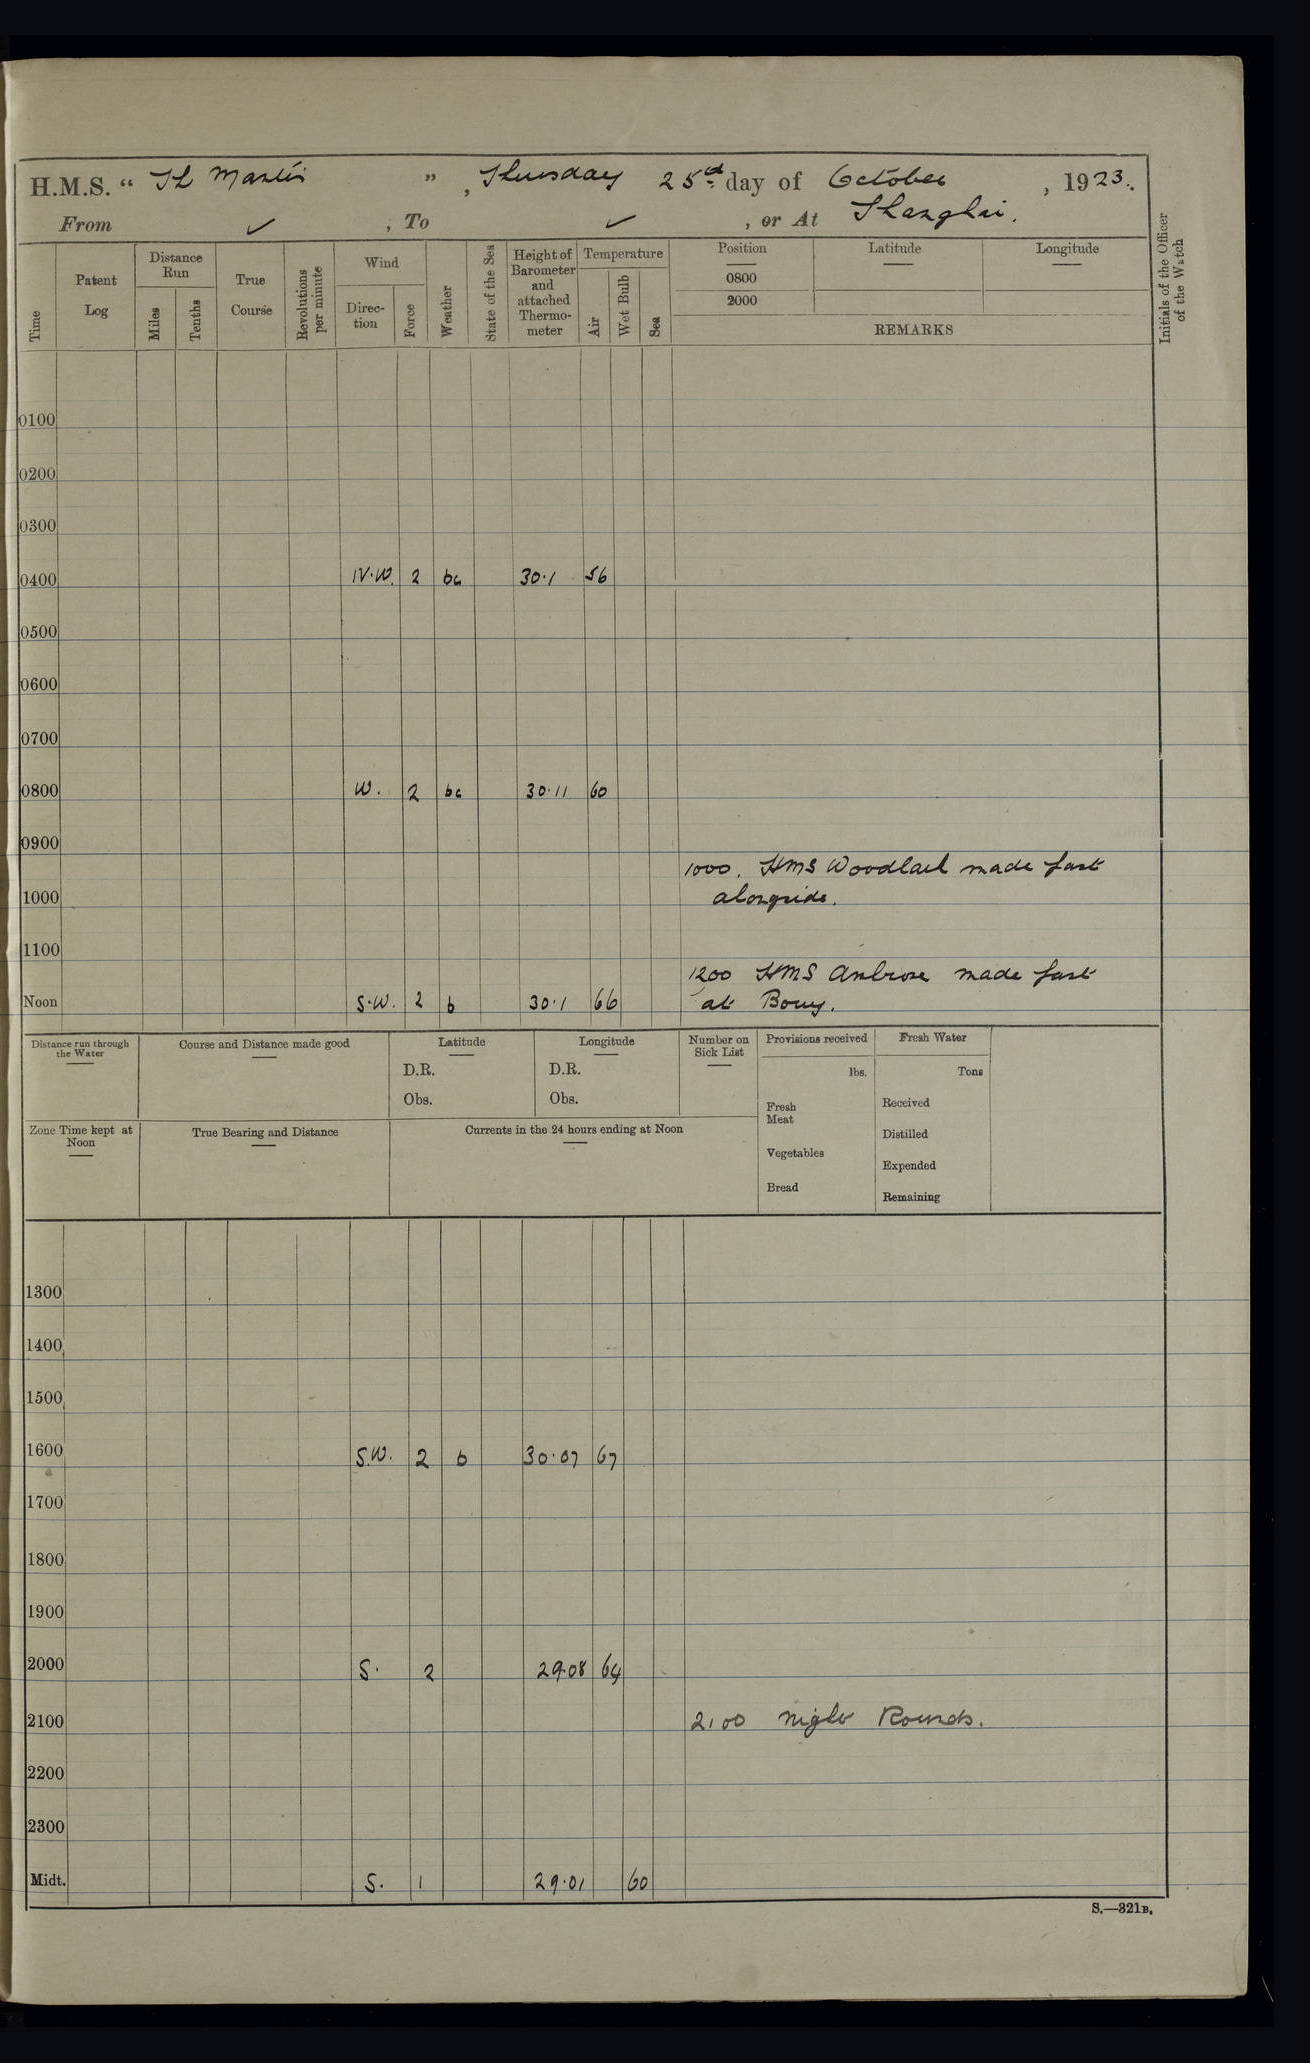 H.M.S. “ St Martin ” , Thursday 25rd day of October , 1923.
From ✓ , To ✓ , or At Shanghai.
Time
Patent Log
Distance Run
Miles
Tenths
True Course
Revolutions per minute
Wind
Direc-tion
Force
Weather
State of the Sea
Height of Barometer and attached Thermo-meter
Temperature
Air
Wet Bulb
Sea
Position
0800
2000
Latitude
Longitude
REMARKS
Initials of the Officer of the Watch
0100
0200
0300
0400 N.W. 2 bc 30.1 56
0500
0600
0700
0800 W. 2 bc 30.11 60
0900
1000. HMS Woodlark made fast
alongside.
1000
1100
1200 HMS Ambrose made fast
at Bouy.
Noon S.W. 2 b 30.1 66
Distance run through the Water
Course and Distance made good
Latitude
D.R.
Obs.
Longitude
D.R.
Obs.
Number on Sick List
Provisions received
lbs.
Fresh Meat
Vegetables
Bread
Fresh Water
Tons
Received
Distilled
Expended
Remaining
Zone Time kept at Noon
True Bearing and Distance
Currents in the 24 hours ending at Noon
1300
1400
1500
1600 S.W. 2 b 30.07 67
1700
1800
1900
2000 S. 2 29.08 64
2100 2100 Night Rounds.
2200
2300
Midt. S. 1 29.01 60
S.—321B.